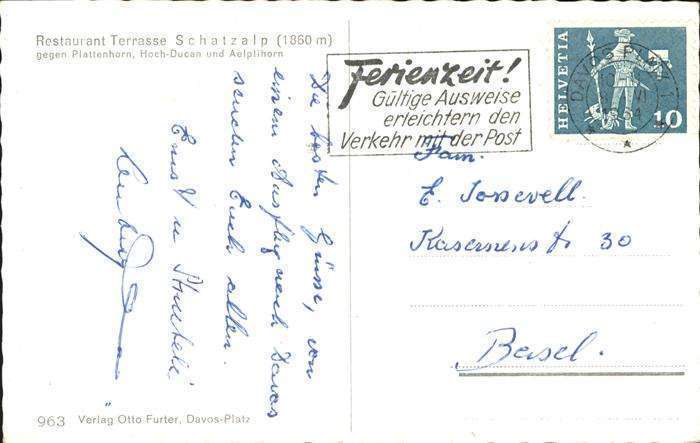 Restaurant Terrasse Schatzalp (1860 m)
gegen Plattenhorn, Hoch-Ducan und Aelplihorn
Ferienzeit!
Gültige Ausweise
erleichtern den
Verkehr mit der Post
HELVETIA
10
DAVOS PLATZ
Die besten Grüsse, von
einem Ausflug nach Davos
senden Euch allen.
Ernst u
Fam.
E.
Kasernenstr 30
Basel.
963 Verlag Otto Furter, Davos-Platz